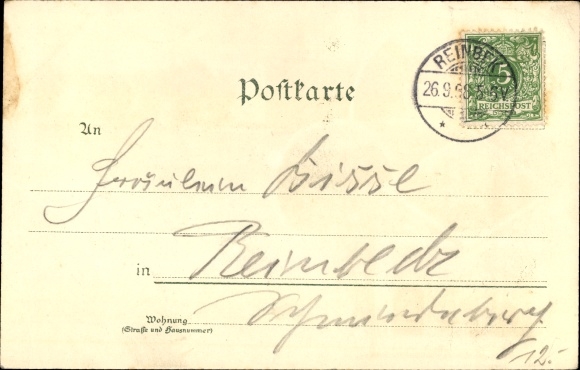 Postkarte
REINBEK
26.9.98.5-6N
5
REICHSPOST
An
Fräulein
in Reinbeck
Wohnung
(Straße und Hausnummer)
12.-